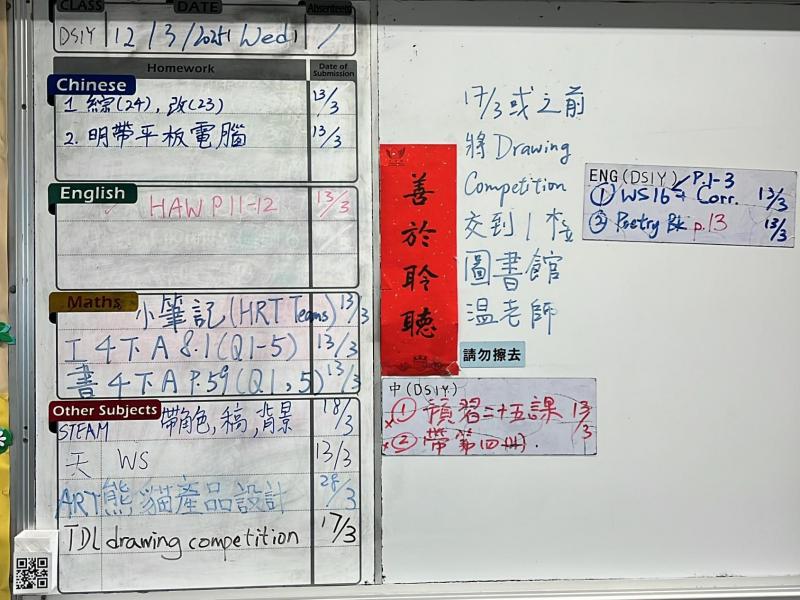 CLASS DATE Absentees
DSIY 12/3/2025 Wed /
Homework Date of Submission
Chinese
1 綜(24), 改(23) 13/3
2. 明帶平板電腦 13/3
English
HAW P11-12 13/3
Maths
小筆記(HRT Teams) 13/3
工 4下A 8.1(Q1-5) 13/3
書 4下A P.59(Q1,5) 13/3
Other Subjects
STEAM 帶角色,稿,背景 18/3
天 WS 13/3
ART 熊貓產品設計 28/3
TDL drawing competition 17/3
17/3或之前
將Drawing
Competition
交到1樓
圖書館
温老師
請勿擦去
善於聆聽
ENG(DSIY) P.1-3
① WS16 + Corr. 13/3
② Poetry Bk p.13 13/3
中(DSIY)
① 預習二十五課 13/3
② 帶第四冊.